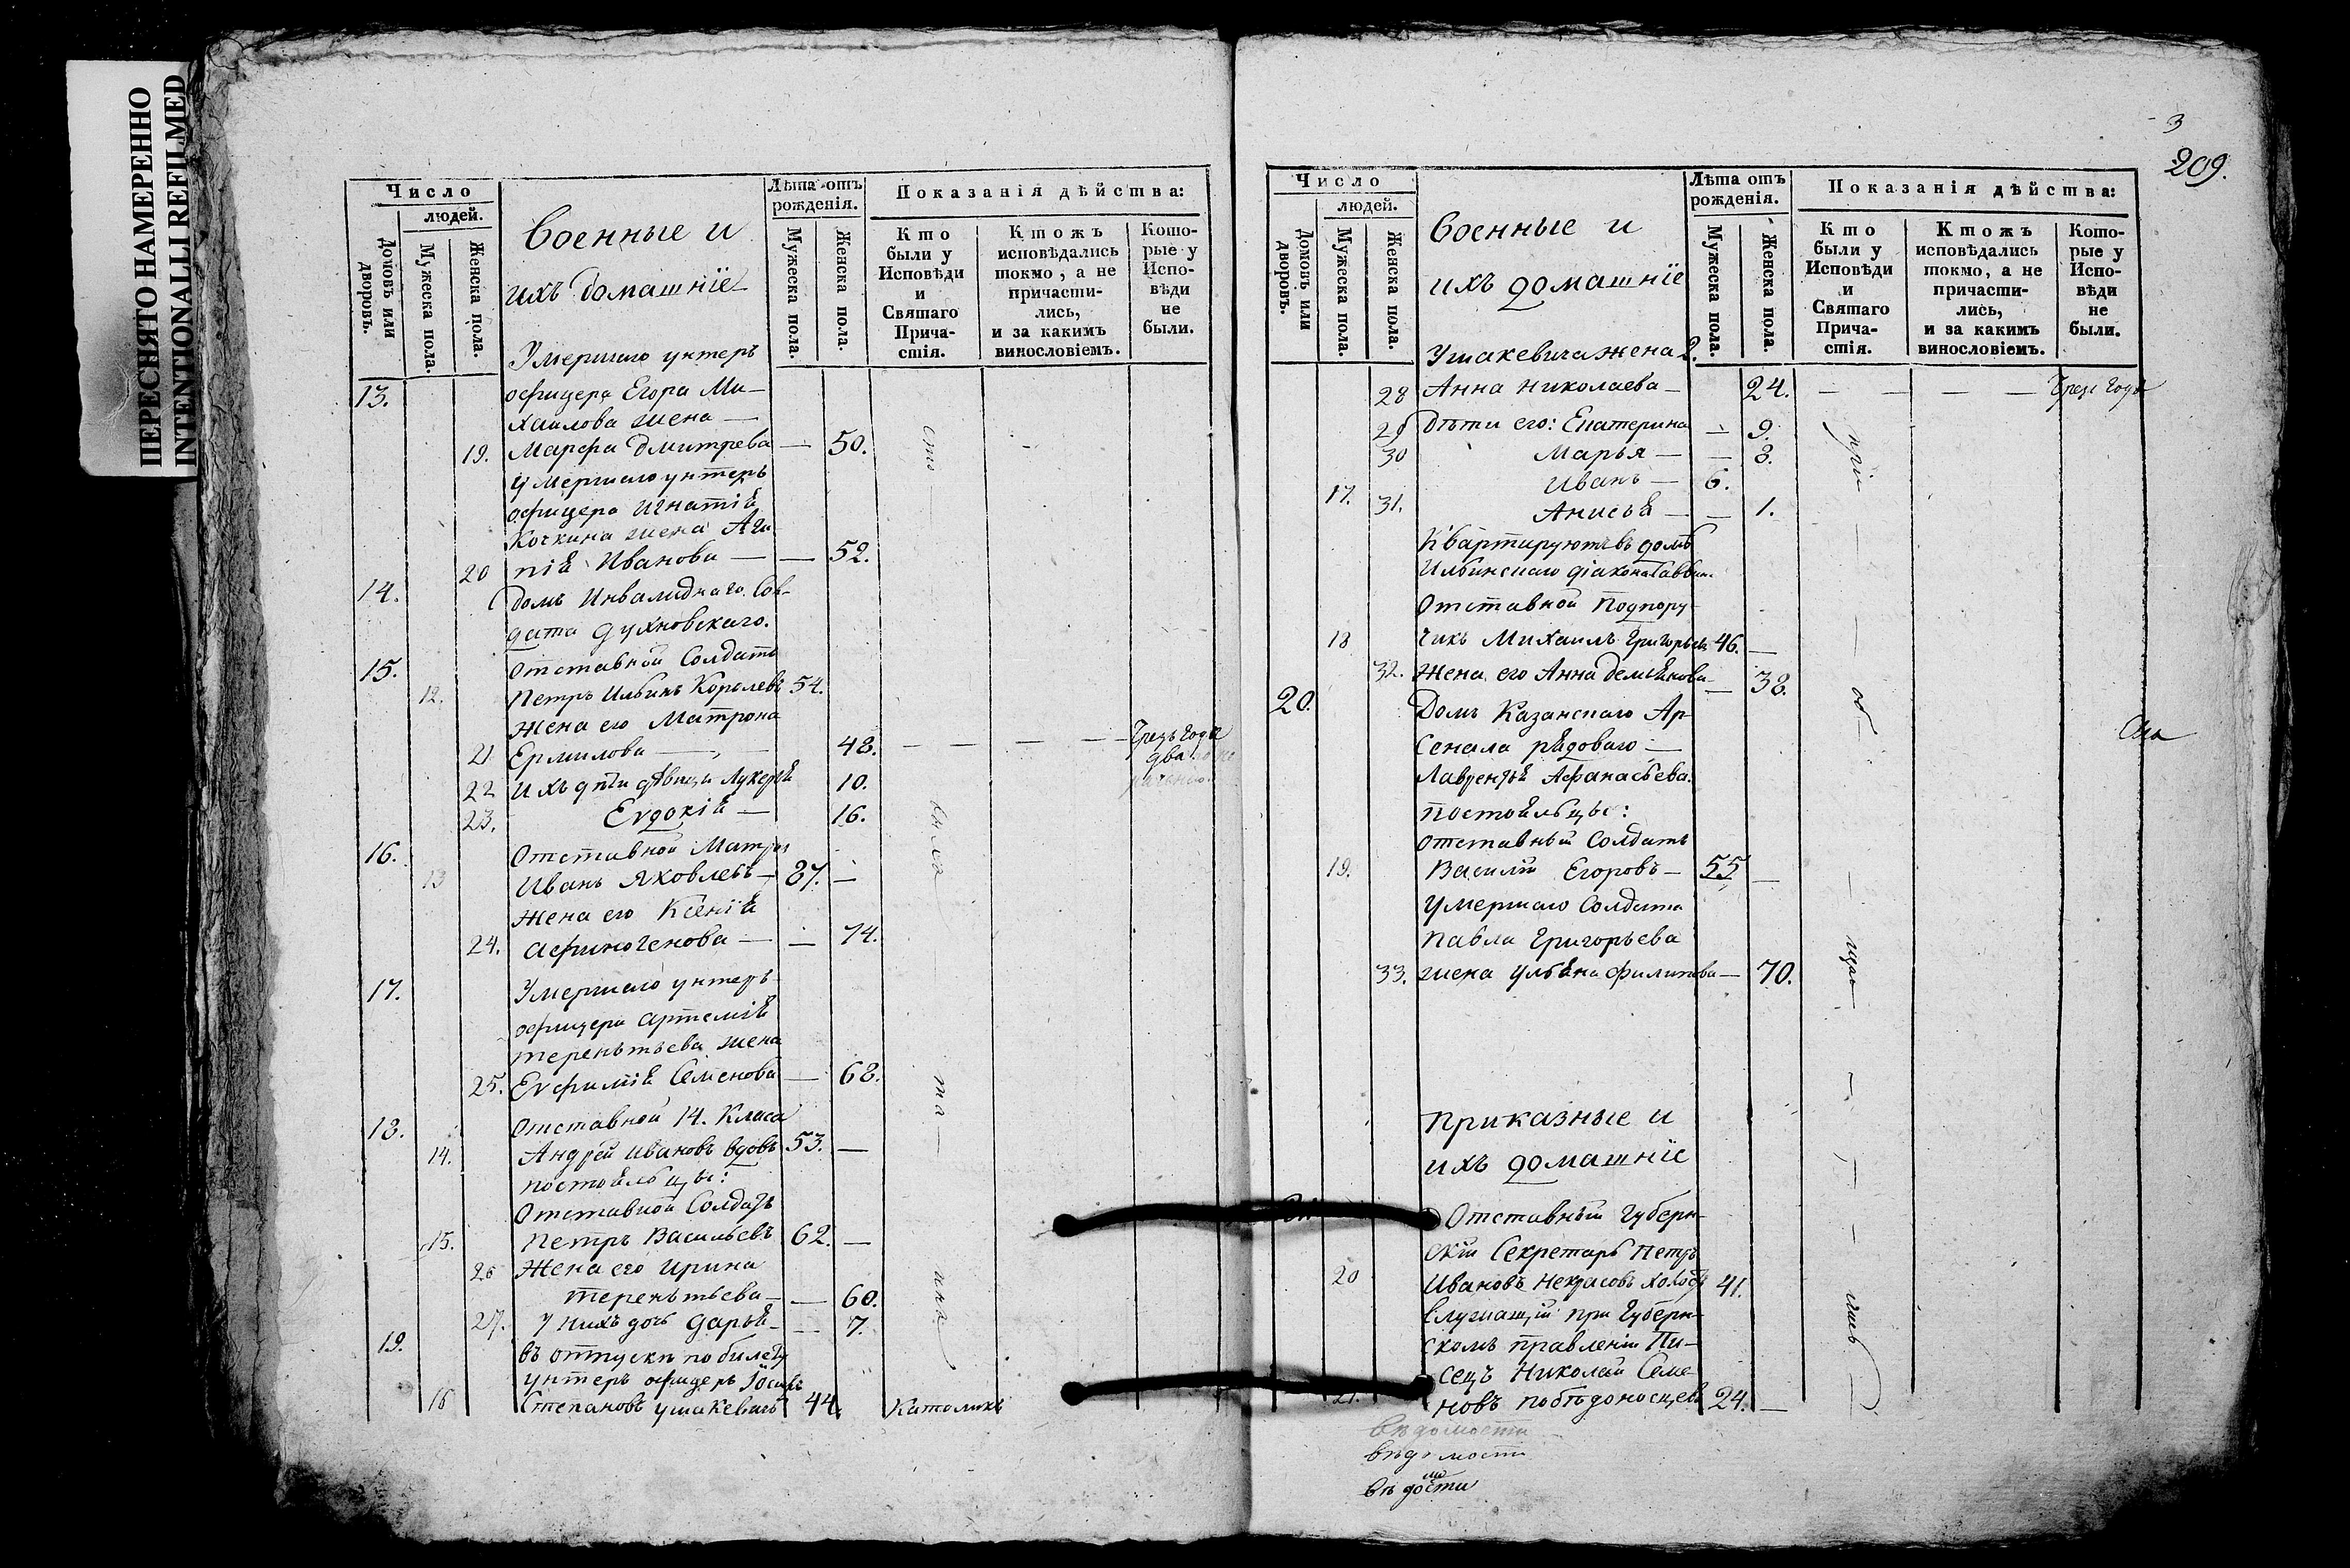 ПЕРЕСНЯТО НАМЕРЕННО
INTENTIONALLI REFILMED
Число
людей.
Домовъ или дворовъ.
Мужеска пола.
Женска пола.
Военные и
ихъ домашніе
Лѣта отъ рожденія.
Мужеска пола.
Женска пола.
Показанія дѣйства:
Кто были у Исповѣди и Святаго Причастія.
Ктожъ исповѣдались токмо, а не причастились, и за какимъ винословіемъ.
Которые у Исповѣди не были.
Умершаго унтеръ
13. офицера Егора Ми-
хаилова жена —
19. Марфа Дмитрева — 50.
Умершаго унтеръ
офицера Игнатія
Кочкина жена Ага
20 пія Иванова — — 52.
14. Домъ Инвалиднаго Сол-
дата Духновскаго.
15. Отставной Солдатъ
12. Петръ Ильинъ Королевъ 54.
Жена его Матрона
21 Ермилова — 48. — — — — Чрезъ года
два
22 Ихъ дѣти дѣвицы Лукерья 10.
23. Евдокія — 16.
16. Отставной Матрос
13 Иванъ Яковлевъ — 87. —
Жена его Ксенія
24. Афиногенова — — 74.
17. Умершаго унтеръ-
офицера Артемія
терентьева жена
25. Евфимія Семенова — 68.
18. Отставной 14. Класа
14. Андрей Ивановъ вдовъ 53. —
постояльцы:
Отставной Солдатъ
15. Петръ Васильевъ 62. —
26 Жена его Ирина
терентьева — — 60.
27. У нихъ дочь Дарья — — 7.
19. въ отпуске по билету
унтеръ офицеръ Іосифъ
16 Степановъ Ушакевичъ 44. Католикъ
3
209.
Число
людей.
Домовъ или дворовъ.
Мужеска пола.
Женска пола.
Военные и
ихъ домашніе
Лѣта отъ рожденія.
Мужеска пола.
Женска пола.
Показанія дѣйства:
Кто были у Исповѣди и Святаго Причастія.
Ктожъ исповѣдались токмо, а не причастились, и за какимъ винословіемъ.
Которые у Исповѣди не были.
Ушакевича жена 2.
28 Анна Николаева — 24. — — — — Чрез года
29 Дѣти его: Екатерина — 9.
30 Марья — — 8.
Иванъ — 6.
17. 31. Анисья — — 1.
Квартируютъ въ домѣ
Ильинскаго діакона
Отставной Подпору-
18 чикъ Михаилъ Григорьевъ 46. —
32. Жена его Анна Демьянова — 38.
20. Домъ Казанскаго Ар-
сенала рядоваго —
Лаврентья Афанасьева.
постояльцы:
отставный Солдатъ
19. Василій Егоровъ — 55 —
Умершаго Солдата
Павла Григорьева
33. жена Ульяна Филипова — 70.
Приказные и
ихъ домашніе
Отставный Губерн-
скій Секретарь Петръ
20 Ивановъ Некрасовъ холостъ 41.
Служащій при Губерн-
скомъ правленіи Пи-
сецъ Николай Семе
21. новъ побѣдоносцевъ 24. —
вѣдомости
вѣдомости